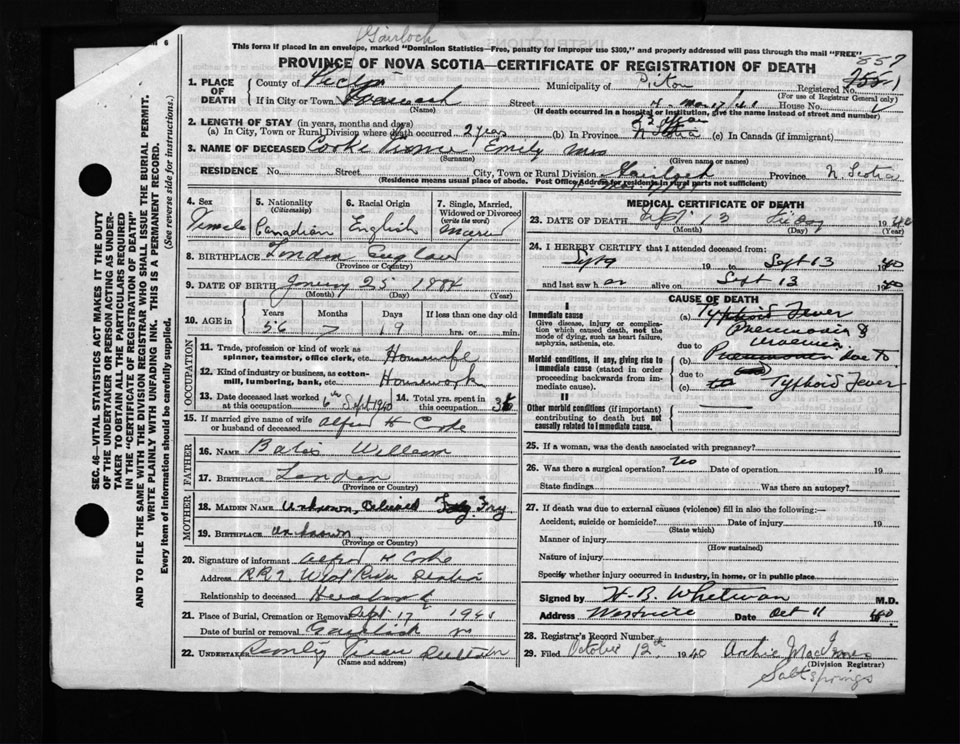 Gairloch
6
This form if placed in an envelope, marked "Dominion Statistics—Free, penalty for improper use $300," and properly addressed will pass through the mail "FREE"
857
PROVINCE OF NOVA SCOTIA—CERTIFICATE OF REGISTRATION OF DEATH
1. PLACE OF DEATH
County of Pictou Municipality of Pictou Registered No.
(For use of Registrar General only)
If in City or Town Street House No.
(If death occurred in a hospital or institution, give the name instead of street and number)
2. LENGTH OF STAY (in years, months and days)
(a) In City, Town or Rural Division where death occurred 2 years (b) In Province N Scotia (c) In Canada (if immigrant)
3. NAME OF DECEASED Cooke Emily Mrs
(Surname) (Given name or names)
RESIDENCE No. Street City, Town or Rural Division Gairloch Province N. Scotia
(Residence means usual place of abode. Post Office Address for residents in rural parts not sufficient)
4. Sex Female
5. Nationality (Citizenship) Canadian
6. Racial Origin English
7. Single, Married, Widowed or Divorced (write the word)
8. BIRTHPLACE London England
(Province or Country)
9. DATE OF BIRTH 25 1884
(Month) (Day) (Year)
10. AGE in Years Months Days If less than one day old
56 7 19 hrs. or min.
OCCUPATION
11. Trade, profession or kind of work as spinner, teamster, office clerk, etc. Housewife
12. Kind of industry or business, as cotton-mill, lumbering, bank, etc. Housework
13. Date deceased last worked at this occupation 6th Sept 1940
14. Total yrs. spent in this occupation
15. If married give name of wife or husband of deceased Alfred H Cooke
FATHER
16. NAME William
17. BIRTHPLACE London
(Province or Country)
MOTHER
18. MAIDEN NAME Unknown, Believed Fry
19. BIRTHPLACE unknown
(Province or Country)
20. Signature of informant Alfred H Cooke
Address RR2 West River Station
Relationship to deceased Husband
21. Place of Burial, Cremation or Removal Sept 17 1940
Date of burial or removal Gairloch
22. UNDERTAKER
(Name and address)
MEDICAL CERTIFICATE OF DEATH
23. DATE OF DEATH Sept 13 Friday 1940
(Month) (Day) (Year)
24. I HEREBY CERTIFY that I attended deceased from:
Sept 9 19 to Sept 13 1940
and last saw h er alive on Sept 13 1940
CAUSE OF DEATH
I
Immediate cause
Give disease, injury or complication which caused death, not the mode of dying, such as heart failure, asphyxia, asthenia, etc.
(a) Typhoid Fever
Pneumonia &
due to
Morbid conditions, if any, giving rise to immediate cause (stated in order proceeding backwards from immediate cause).
(b) Pneumonia due to
due to
(c) to Typhoid Fever
II
Other morbid conditions (if important) contributing to death but not causally related to immediate cause.
25. If a woman, was the death associated with pregnancy?
26. Was there a surgical operation? No Date of operation 19
State findings Was there an autopsy?
27. If death was due to external causes (violence) fill in also the following:—
Accident, suicide or homicide? Date of injury 19
(State which)
Manner of injury
(How sustained)
Nature of injury
Specify whether injury occurred in industry, in home, or in public place
Signed by H.B. Whitman M.D.
Address Westville Date Oct 11 1940
28. Registrar's Record Number
29. Filed October 12th 1940 Archie MacInnes
(Division Registrar)
Saltsprings
SEC. 46—VITAL STATISTICS ACT MAKES IT THE DUTY OF THE UNDERTAKER OR PERSON ACTING AS UNDERTAKER TO OBTAIN ALL THE PARTICULARS REQUIRED IN THE "CERTIFICATE OF REGISTRATION OF DEATH" AND TO FILE THE SAME WITH THE DIVISION REGISTRAR WHO SHALL ISSUE THE BURIAL PERMIT.
WRITE PLAINLY WITH UNFADING INK. THIS IS A PERMANENT RECORD.
Every item of information should be carefully supplied. (See reverse side for instructions.)